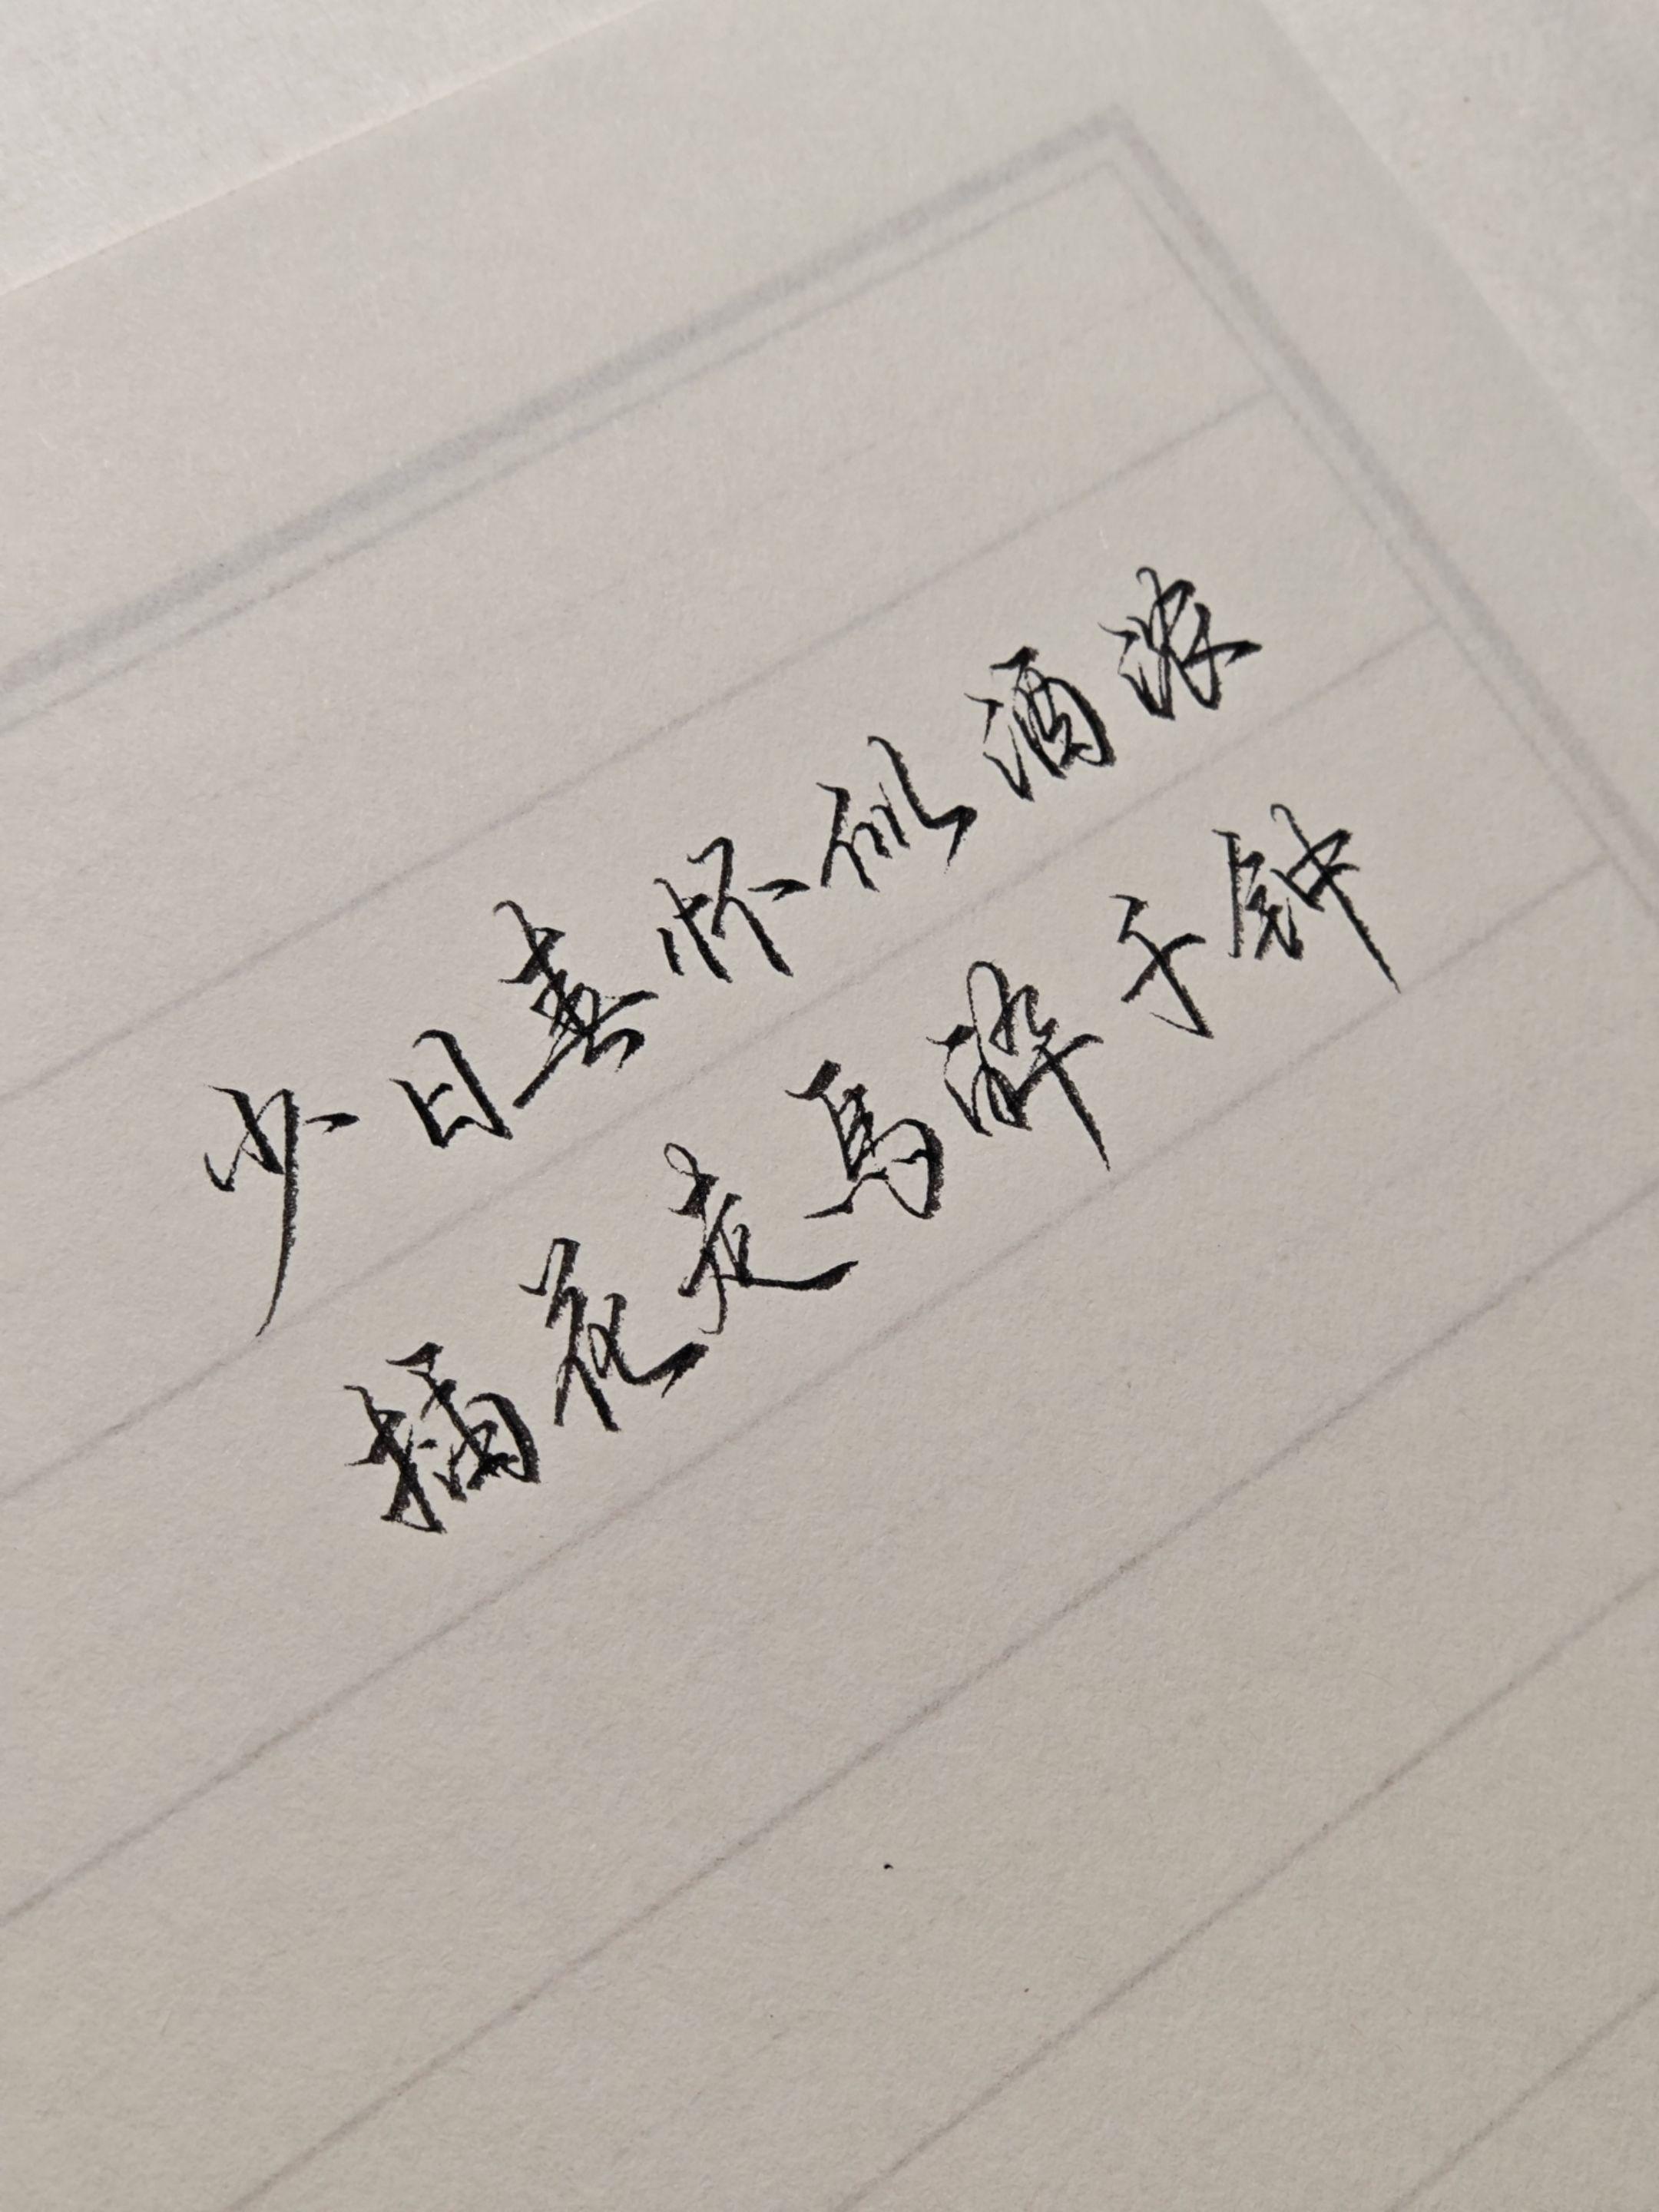 少日春怀似酒浓
插花走马醉千钟